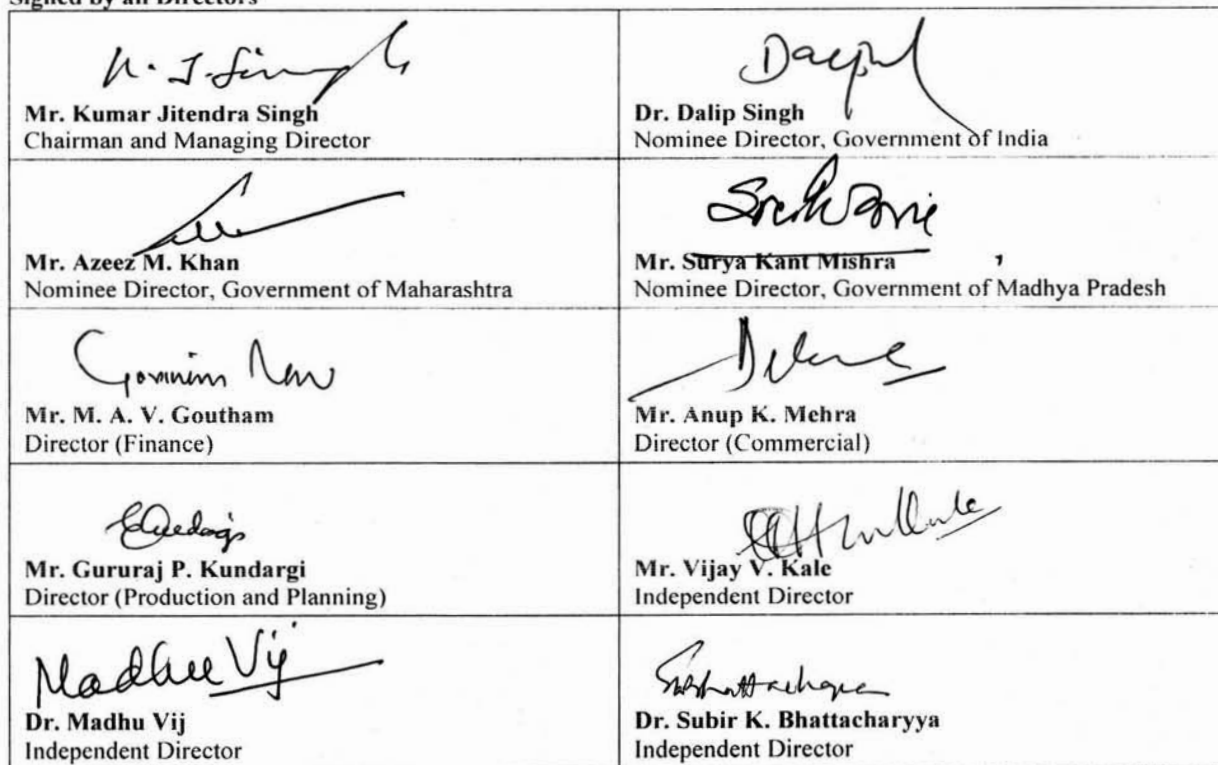 Signed by all Directors
K. J. Singh
Mr. Kumar Jitendra Singh
Chairman and Managing Director
Dr. Dalip Singh
Nominee Director, Government of India
Mr. Azeez M. Khan
Nominee Director, Government of Maharashtra
Mr. Surya Kant Mishra
Nominee Director, Government of Madhya Pradesh
Mr. M. A. V. Goutham
Director (Finance)
Mr. Anup K. Mehra
Director (Commercial)
Mr. Gururaj P. Kundargi
Director (Production and Planning)
Mr. Vijay V. Kale
Independent Director
Madhu Vij
Dr. Madhu Vij
Independent Director
Dr. Subir K. Bhattacharyya
Independent Director